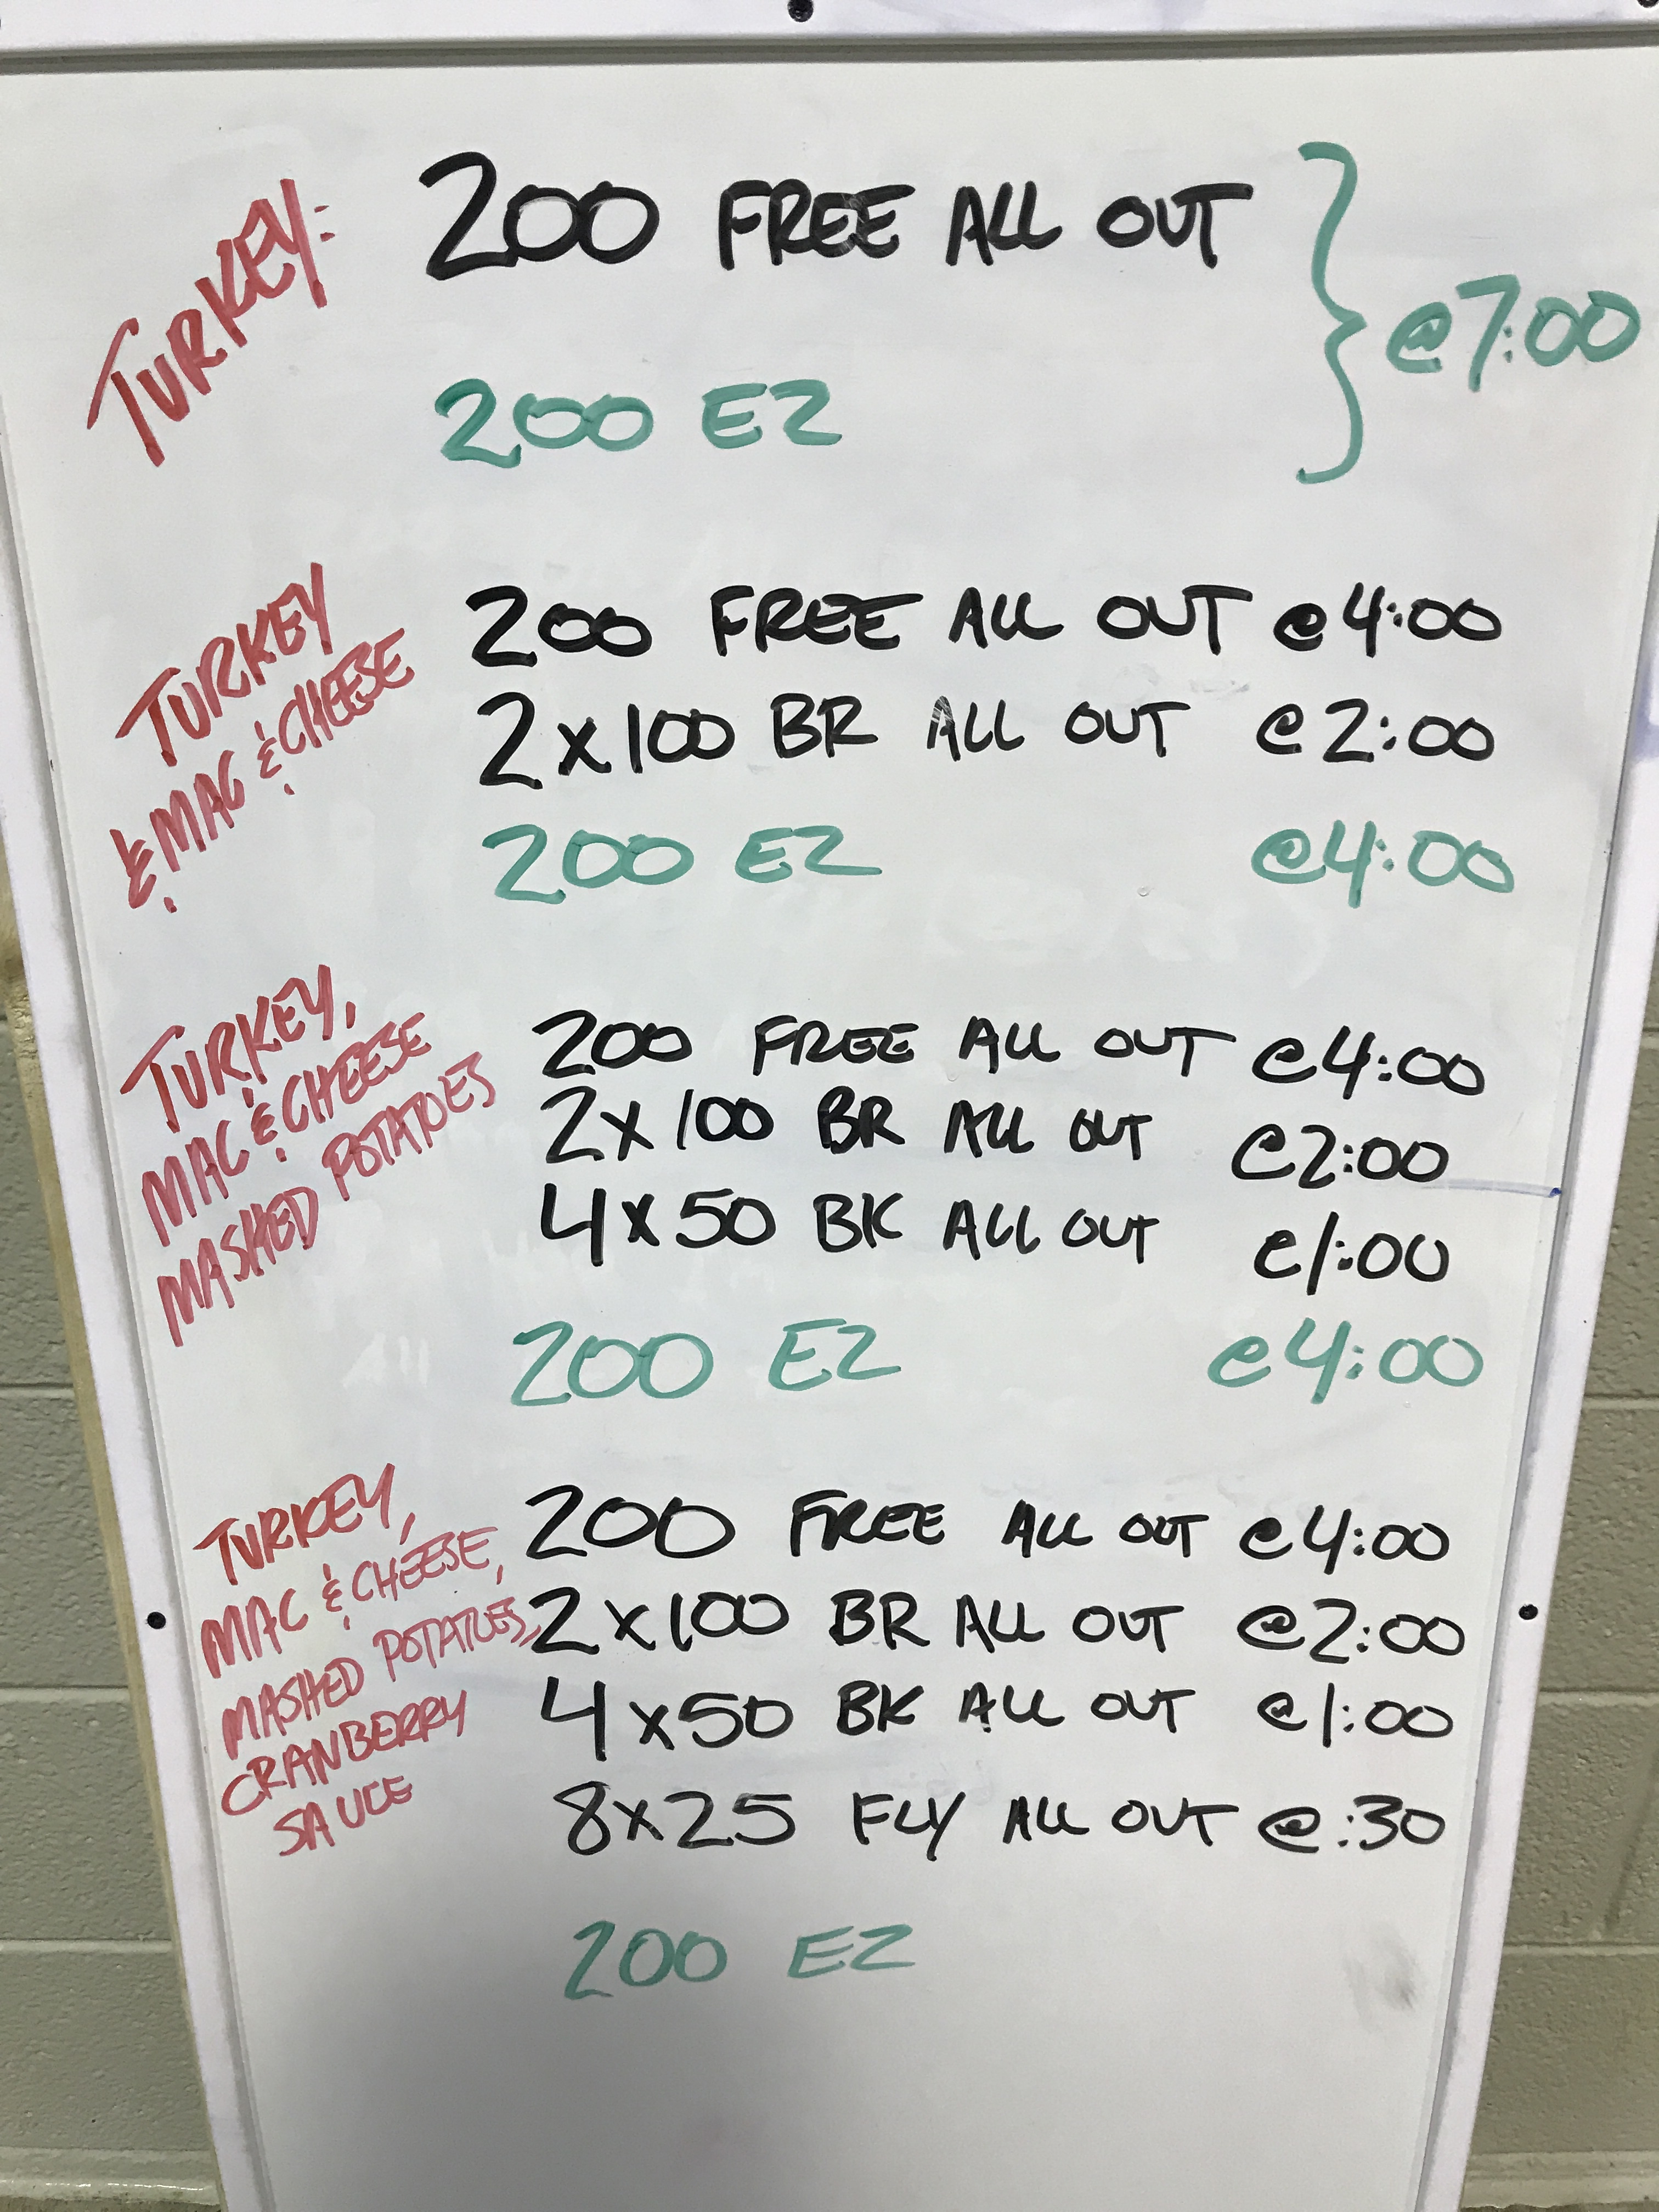 TURKEY:
200 FREE ALL OUT
200 EZ
@7:00
TURKEY
& MAC & CHEESE
200 FREE ALL OUT @4:00
2x100 BR ALL OUT @2:00
200 EZ @4:00
TURKEY,
MAC & CHEESE
MASHED POTATOES
200 FREE ALL OUT @4:00
2x100 BR ALL OUT @2:00
4x50 BK ALL OUT @1:00
200 EZ @4:00
TURKEY,
MAC & CHEESE,
MASHED POTATOES,
CRANBERRY
SAUCE
200 FREE ALL OUT @4:00
2x100 BR ALL OUT @2:00
4x50 BK ALL OUT @1:00
8x25 FLY ALL OUT @:30
200 EZ